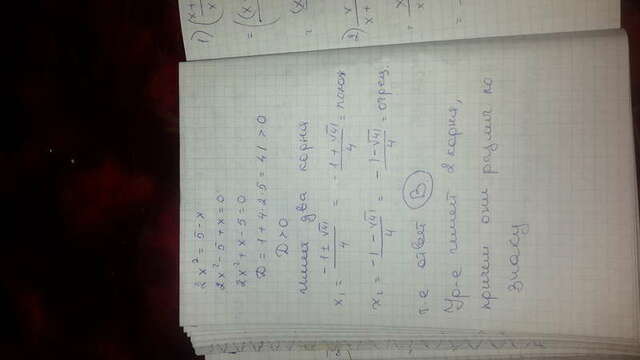 2x² = 5 - x
2x² - 5 + x = 0
2x² + x - 5 = 0
D = 1 + 4·2·5 = 41 > 0
D > 0
два корня
x₁ = -1 ± √41 / 4 = -1 + √41 / 4 =
x₂ = -1 - √41 / 4 = -1 - √41 / 4 = отриц.
т.е ответ В.
Ур-е имеет 2 корня,
причем они различ по
знаку
1) (x+
= ((x
= (x
2) x
x+